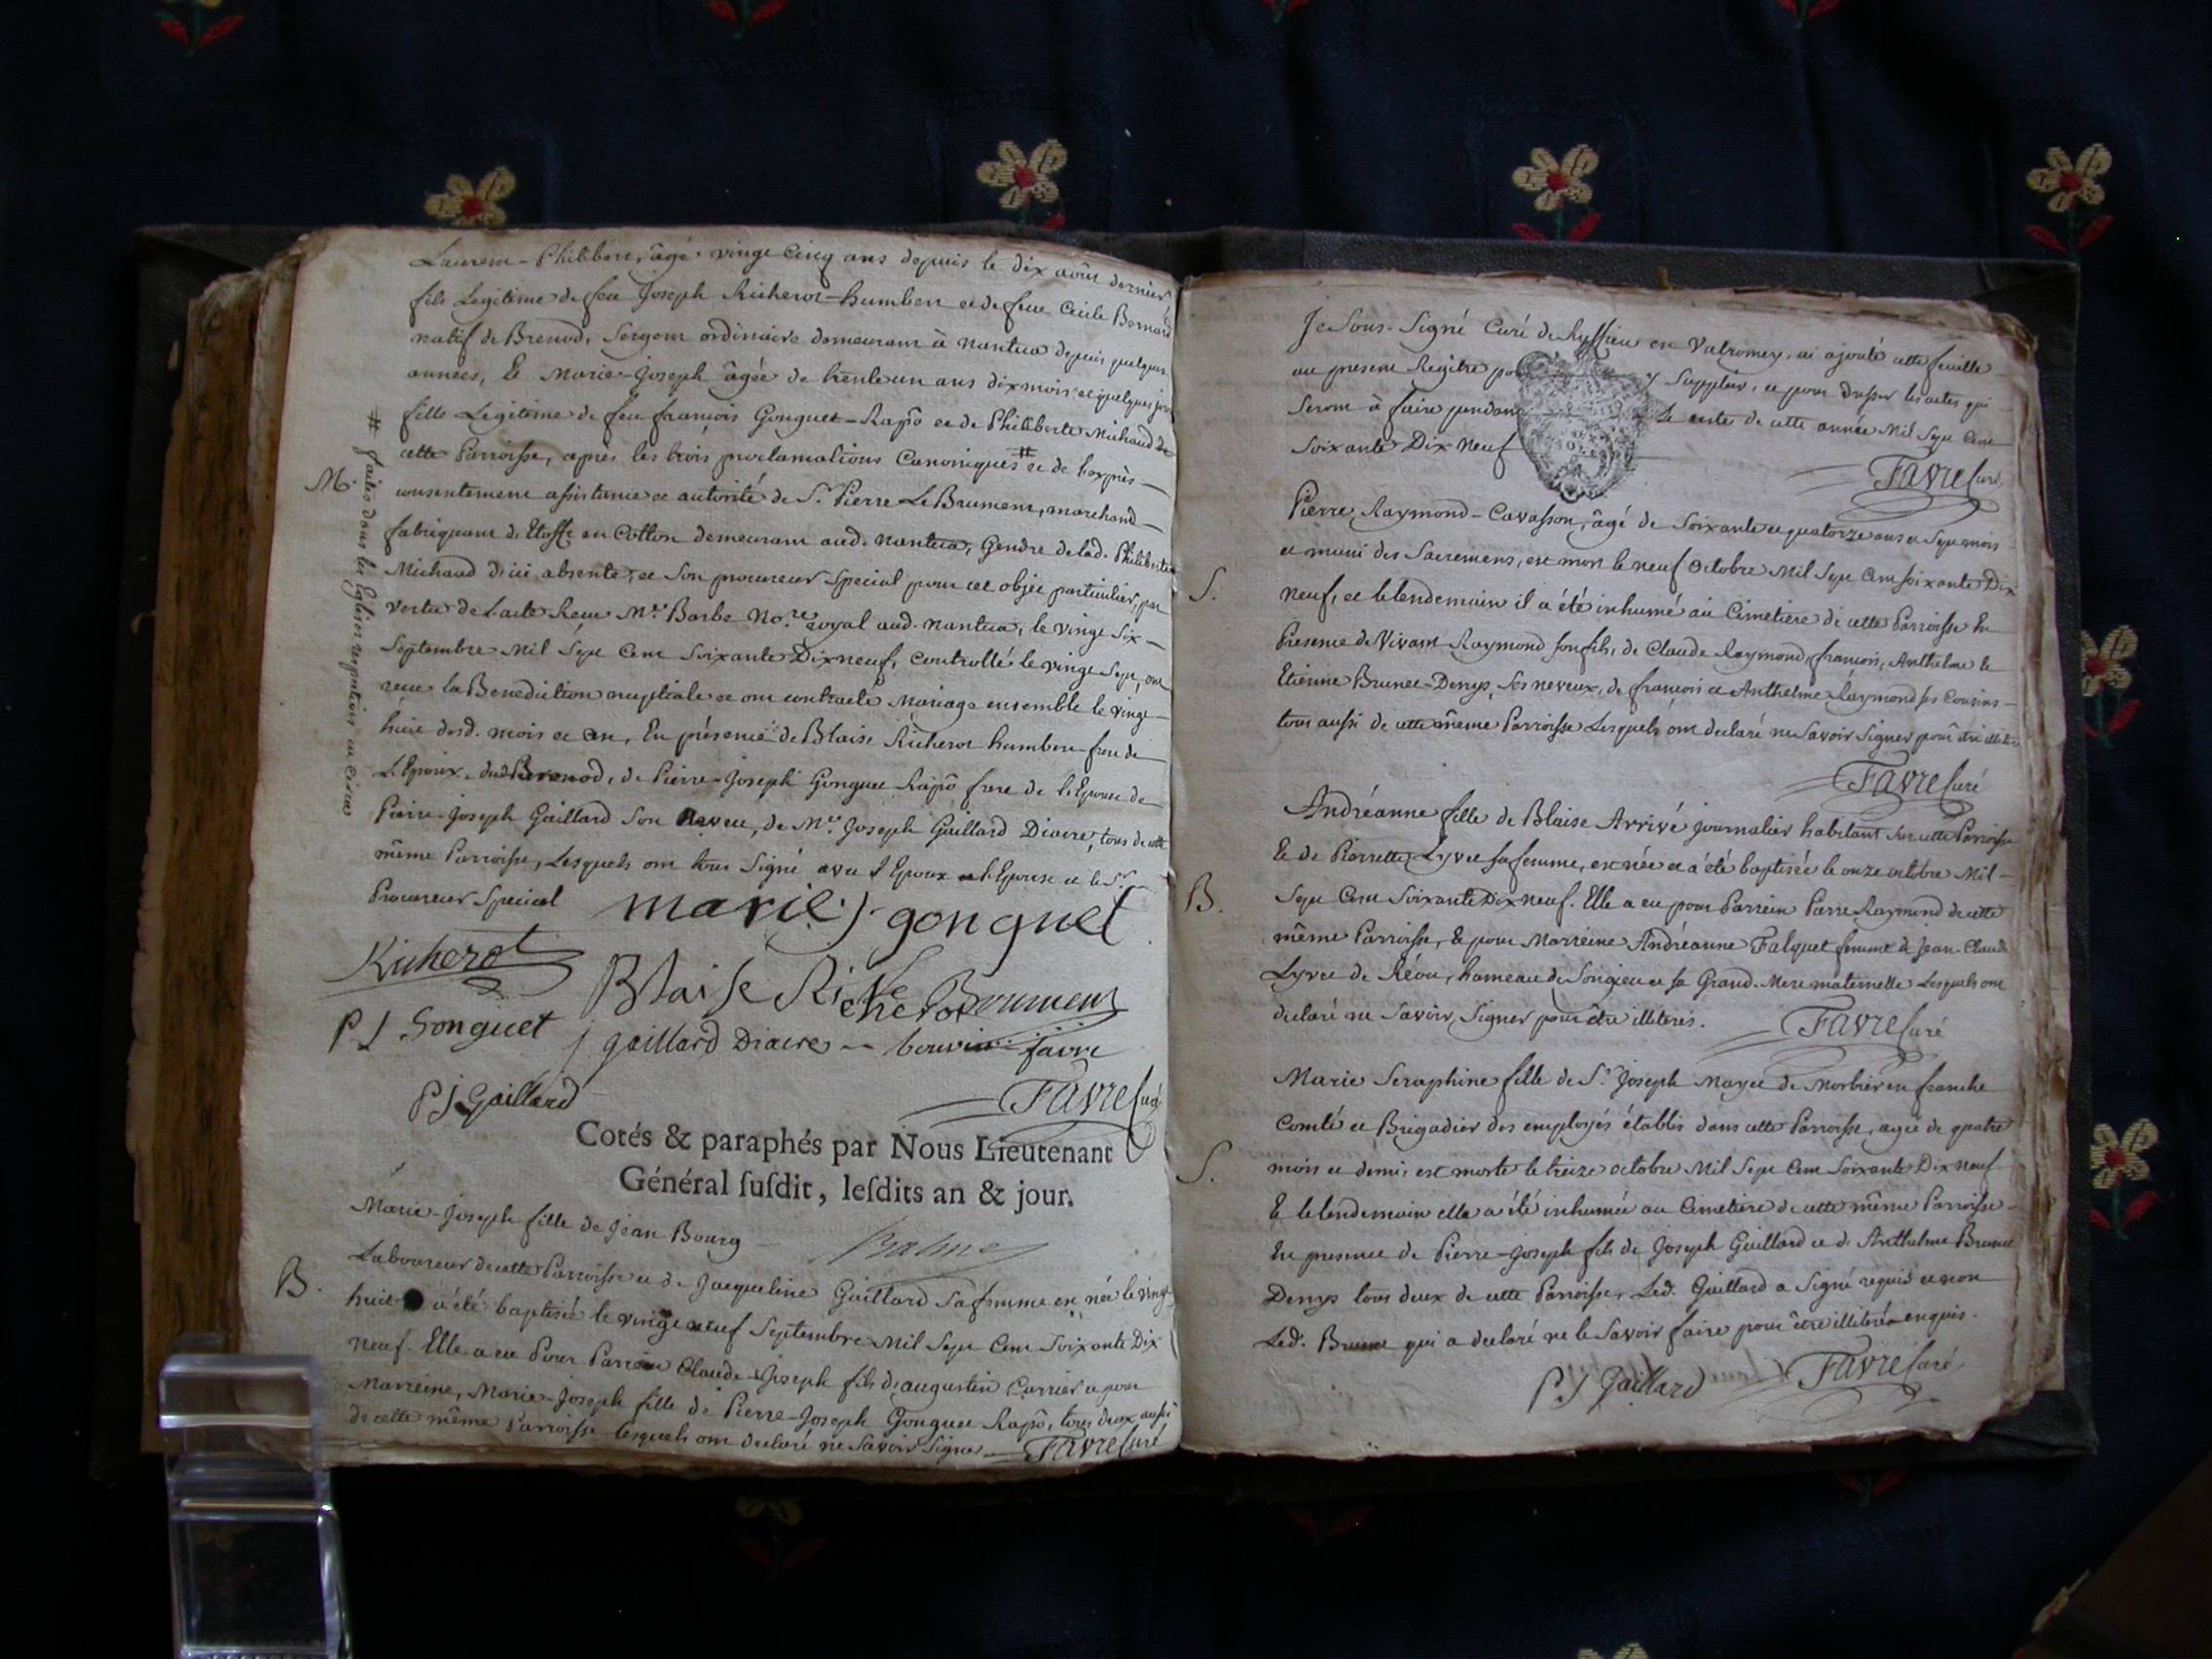 Laurent-Philibert, âgé vingt cinq ans depuis le dix août dernier
fils Legitime de feu Joseph Richerot-humbert et de feue Cécile Bernard
natif de Brenod, Sergent ordinaire demeurant à Nantua depuis quelques
années, Et Marie-Joseph âgée de trente un ans dix mois et quelques jours
fille Legitime de feu françois Gonguet-Rapô et de Philiberte Michaud de
cette Parroisse, après les trois proclamations Canoniques # et de l'exprès
M. consentement assistance et autorité de Sr. Pierre Le Brument, marchand
fabriquant de Etoffe en Cotton demeurant aud. Nantua, Gendre de lad. Philiberte
Michaud d'ici absente, et Son procureur Special pour cet objet particulier, par
vertu de l'acte Reçu Me. Barbe No.re Royal aud. Nantua, le vingt Six
Septembre Mil Sept Cent Soixante Dix neuf, Controllé le vingt Sept, ont
reçu la Benediction nuptiale et ont contracté Mariage ensemble le vingt
huit desd. mois et an, En présence de Blaise Richerot humbert frere de
L'Epoux dud. Brenod, de Pierre-Joseph Gonguet Rapô frere de l'Epouse de
Pierre-Joseph Gaillard Son Neveu, de Me. Joseph Gaillard Diacre, tous de cette
même Parroisse, Lesquels ont tous Signé avec l'Epoux et l'Epouse et le Sr.
Procureur Special
# faites dans les Eglises respectives
marie j. gonguet
Richerot
Blaise Richerot
Le Brument
P J Gonguet
J gaillard Diacre
bouvin favre
P J Gaillard
Favre Curé
Cotés & paraphés par Nous Lieutenant
Général ſuſdit, leſdits an & jour.
Balme
Marie-Joseph fille de Jean Bourg
Laboureur de cette Parroisse et de Jacqueline Gaillard Sa femme est née le vingt
B. huit a été baptisée le vingt neuf Septembre Mil Sept Cent Soixante Dix
neuf. Elle a eu Pour Parrein Claude-Joseph fils d'augustin Carrier et pour
Marreine, Marie-Joseph fille de Pierre-Joseph Gonguet Rapô, tous deux aussi
de cette même Parroisse lesquels ont declaré ne Savoir Signer Favre Curé
Je Sous-Signé Curé de Ruffieu en Valromey, ai ajouté cette feuille
au present Regitre pour y Suppléer, et pour dresser les actes qui
Seront à faire pendant le reste de cette année Mil Sept Cent
Soixante Dix Neuf
Favre Curé
Pierre Raymond-Cavasson, âgé de Soixante et quatorze ans et Sept mois
et muni des Sacremens, est mort le neuf Octobre Mil Sept Cent Soixante Dix
S. neuf, et le lendemain il a été inhumé au Cimetiere de cette Parroisse En
Presence de Vivant Raymond Son fils, de Claude Raymond, françois, Anthelme Et
Etienne Brunet-Denys, Ses neveux, de françois et Anthelme Raymond ses Cousins
tous aussi de cette même Parroisse Lesquels ont declaré ne Savoir Signer pour être illiterés
Favre Curé
Andréanne fille de Blaise Arrivé journalier habitant Sur cette Parroisse
Et de Pierrette Lyvet Sa femme, est née et a été baptisée le onze octobre Mil
B. Sept Cent Soixante Dix neuf. Elle a eu pour Parrein Pierre Raymond de cette
même Parroisse, Et pour Marreine Andréanne Falquet femme de Jean-Claude
Lyvet de Réou, hameau de Songieu et Sa Grand-Mere maternelle Lesquels ont
declaré ne Savoir Signer pour être illiterés.
Favre Curé
Marie Seraphine fille de Sr. Joseph Mayet de Morbier en franche
Comté et Brigadier des employés établis dans cette Parroisse, agée de quatre
S. mois et demi, est morte le treize octobre Mil Sept Cent Soixante Dix neuf
Et le lendemain elle a été inhumée au Cimetiere de cette même Parroisse
En presence de Pierre-Joseph fils de Joseph Gaillard et d'Anthelme Brunet
Denys tous deux de cette Parroisse, Led. Gaillard a Signé requis et non
Led. Brunet qui a declaré ne le Savoir faire pour être illiteré enquis.
P J Gaillard
Favre Curé